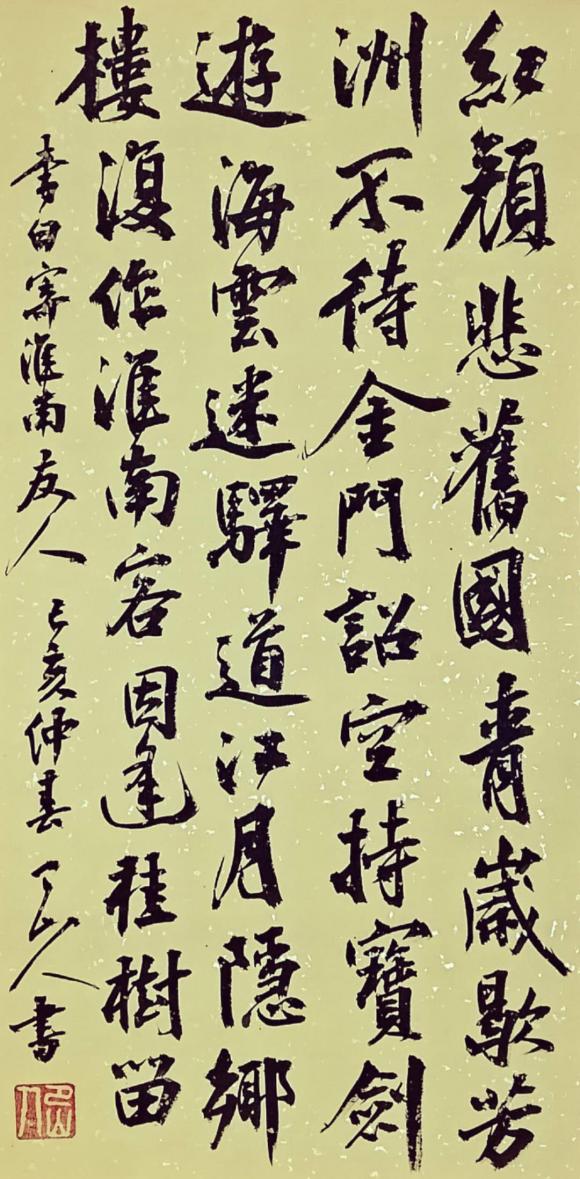 紅顏悲舊國青歲歇芳
洲不待金門詔空持寶劍
遊海雲迷驛道江月隱鄉
樓復作淮南客因逢桂樹留
李白寄淮南友人 己亥仲春 山人書